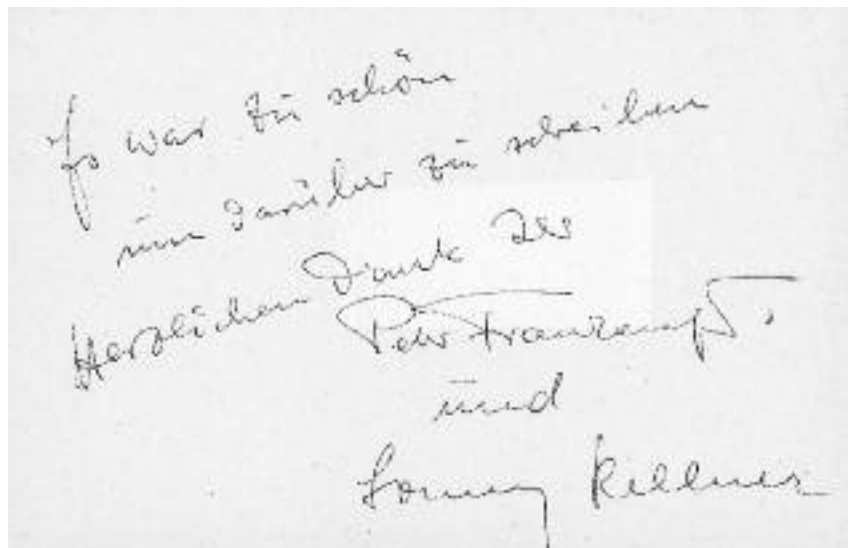 Es war zu schön
um darüber zu schreiben
Herzlichen Dank
Peter Frankenfeld
und
Lonny Kellner